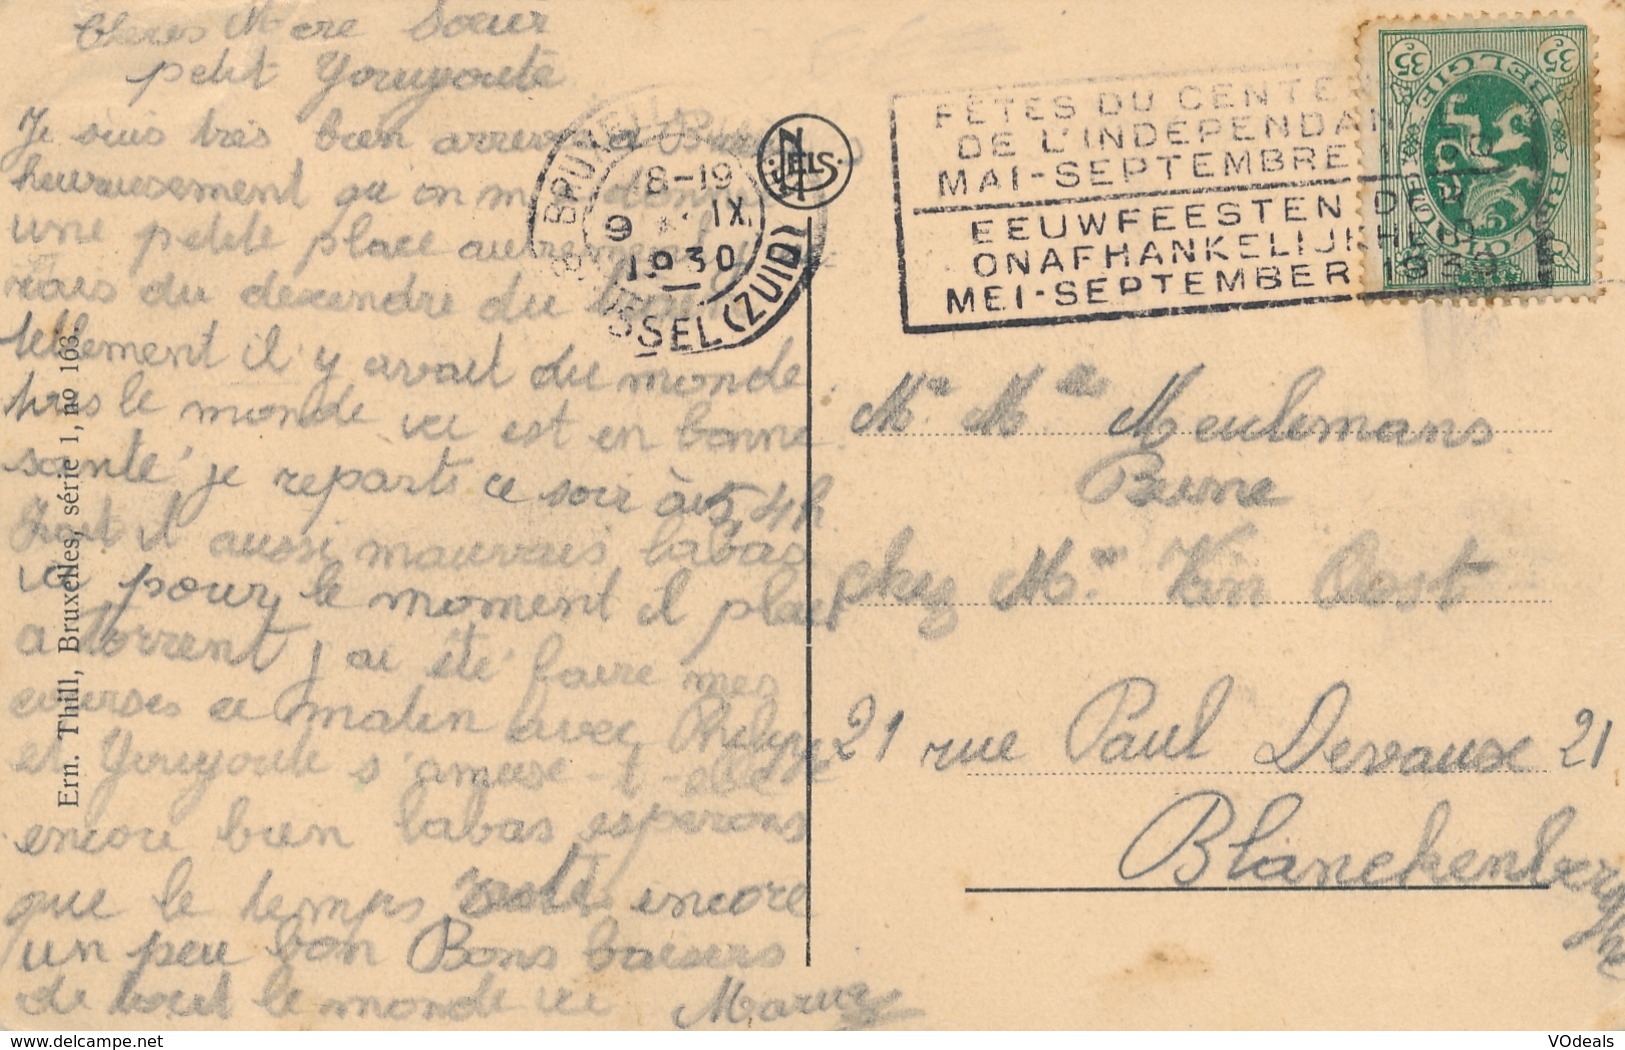 Cheres Mere Soeur
petit Youyoute
Je suis très bien arrever a
heureusement qu on m
une petite place autrement j
rais du descendre du
tellement il y avait du monde
tres le monde ici est en bonne
santé je repart ce soir à 5,4h
Fait il aussi mauvais labas
ici pour le moment il pleut
a torrent j ai été faire mes
courses ce matin avec Philippe
et Youyoute s'amuse-t-elle
encore bien labas esperons
que le temps reste encore
un peu bon Bons baisers
de tout le monde ici
Ern. Thill, Bruxelles, série 1, no 163.
8-19
9 IX
1930
SSEL (ZUID)
NELS
FÊTES DU CENTE
DE L'INDÉPENDAN
MAI-SEPTEMBRE
EEUWFEESTEN DER
ONAFHANKELIJKHEID
MEI-SEPTEMBER 1930
35c 35c
BELGIE
Mr Me Meulemans
chez Mr Van Oost
21 rue Paul Devaux 21
Blanckenberghe
VOdeals
www.delcampe.net